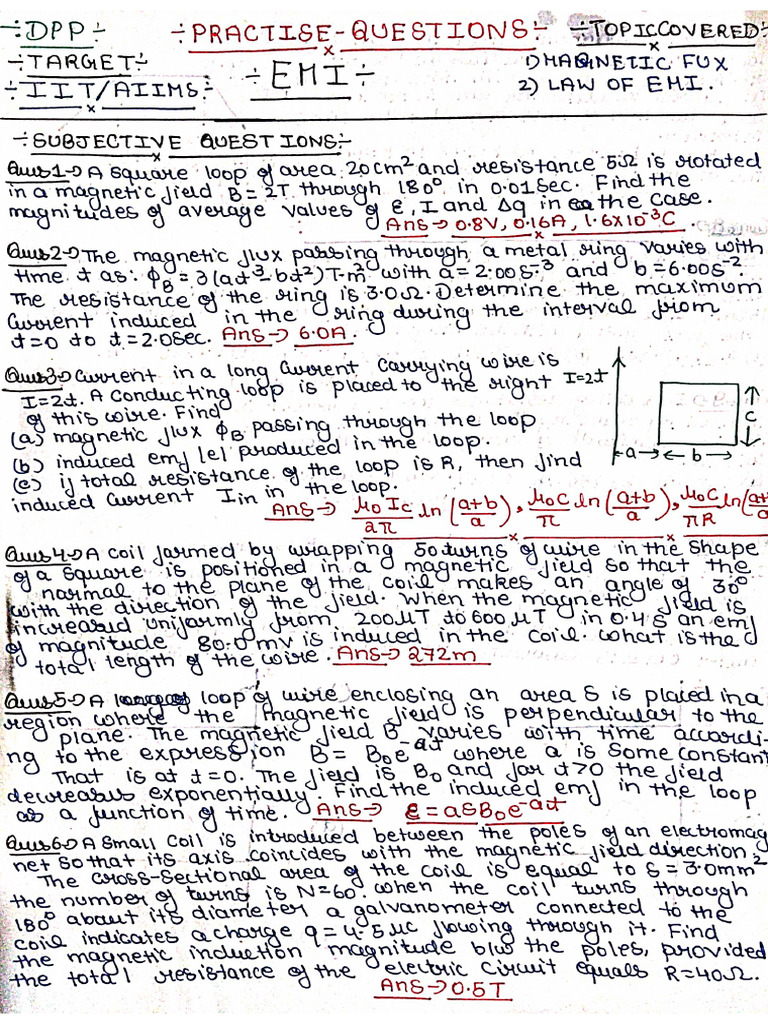 ÷DPP÷ ÷PRACTISE-QUESTIONS÷ ÷TOPIC COVERED÷
÷TARGET÷ ÷EMI÷ 1) MAGNETIC FUX
÷IIT/AIIMS÷ 2) LAW OF EMI.
÷SUBJECTIVE QUESTIONS÷
Ques1→ A square loop of area 20cm² and resistance 5Ω is rotated
in a magnetic field B=2T through 180° in 0.01sec. Find the
magnitudes of average values of ε, I and Δq in the case.
Ans→ 0.8V, 0.16A, 1.6×10⁻³C
Ques2→ The magnetic flux passing through a metal ring varies with
time t as: ϕ_B = 3(at³-bt²)T-m² with a=2.00s⁻³ and b=6.00s⁻².
The resistance of the ring is 3.0Ω. Determine the maximum
current induced in the ring during the interval from
t=0 to t=2.0sec. Ans→ 6.0A.
Ques3→ Current in a long current carrying wire is
I=2t. A conducting loop is placed to the right I=2t
of this wire. Find
(a) magnetic flux ϕ_B passing through the loop c
(b) induced emf |e| produced in the loop. a b
(c) if total resistance of the loop is R, then find
induced current I_in in the loop.
Ans→ μ₀Ic/2π ln(a+b/a), μ₀c/π ln(a+b/a), μ₀c/πR ln(a+b/a
Ques4→ A coil formed by wrapping 50 turns of wire in the shape
of a square is positioned in a magnetic field so that the
normal to the plane of the coil makes an angle of 30°
with the direction of the field. When the magnetic field is
increased uniformly from 200μT to 600μT in 0.4s an emf
of magnitude 80.0mv is induced in the coil. what is the
total length of the wire. Ans→ 272m
Ques5→ A loop of wire enclosing an area S is placed in a
region where the magnetic field is perpendicular to the
plane. The magnetic field B varies with time accordi-
ng to the expression B = B₀e⁻ᵃᵗ where a is some constant
That is at t=0. The field is B₀ and for t>0 the field
decreases exponentially. Find the induced emf in the loop
as a function of time. Ans→ ε=aSB₀e⁻ᵃᵗ
Ques6→ A small coil is introduced between the poles of an electromag
net so that its axis coincides with the magnetic field direction.
The cross-sectional area of the coil is equal to S=3.0mm²
the number of turns is N=60. when the coil turns through
180° about its diameter a galvanometer connected to the
coil indicates a charge q=4.5μc flowing through it. Find
the magnetic induction magnitude b/w the poles, provided
the total resistance of the electric circuit equals R=40Ω.
Ans→ 0.5T